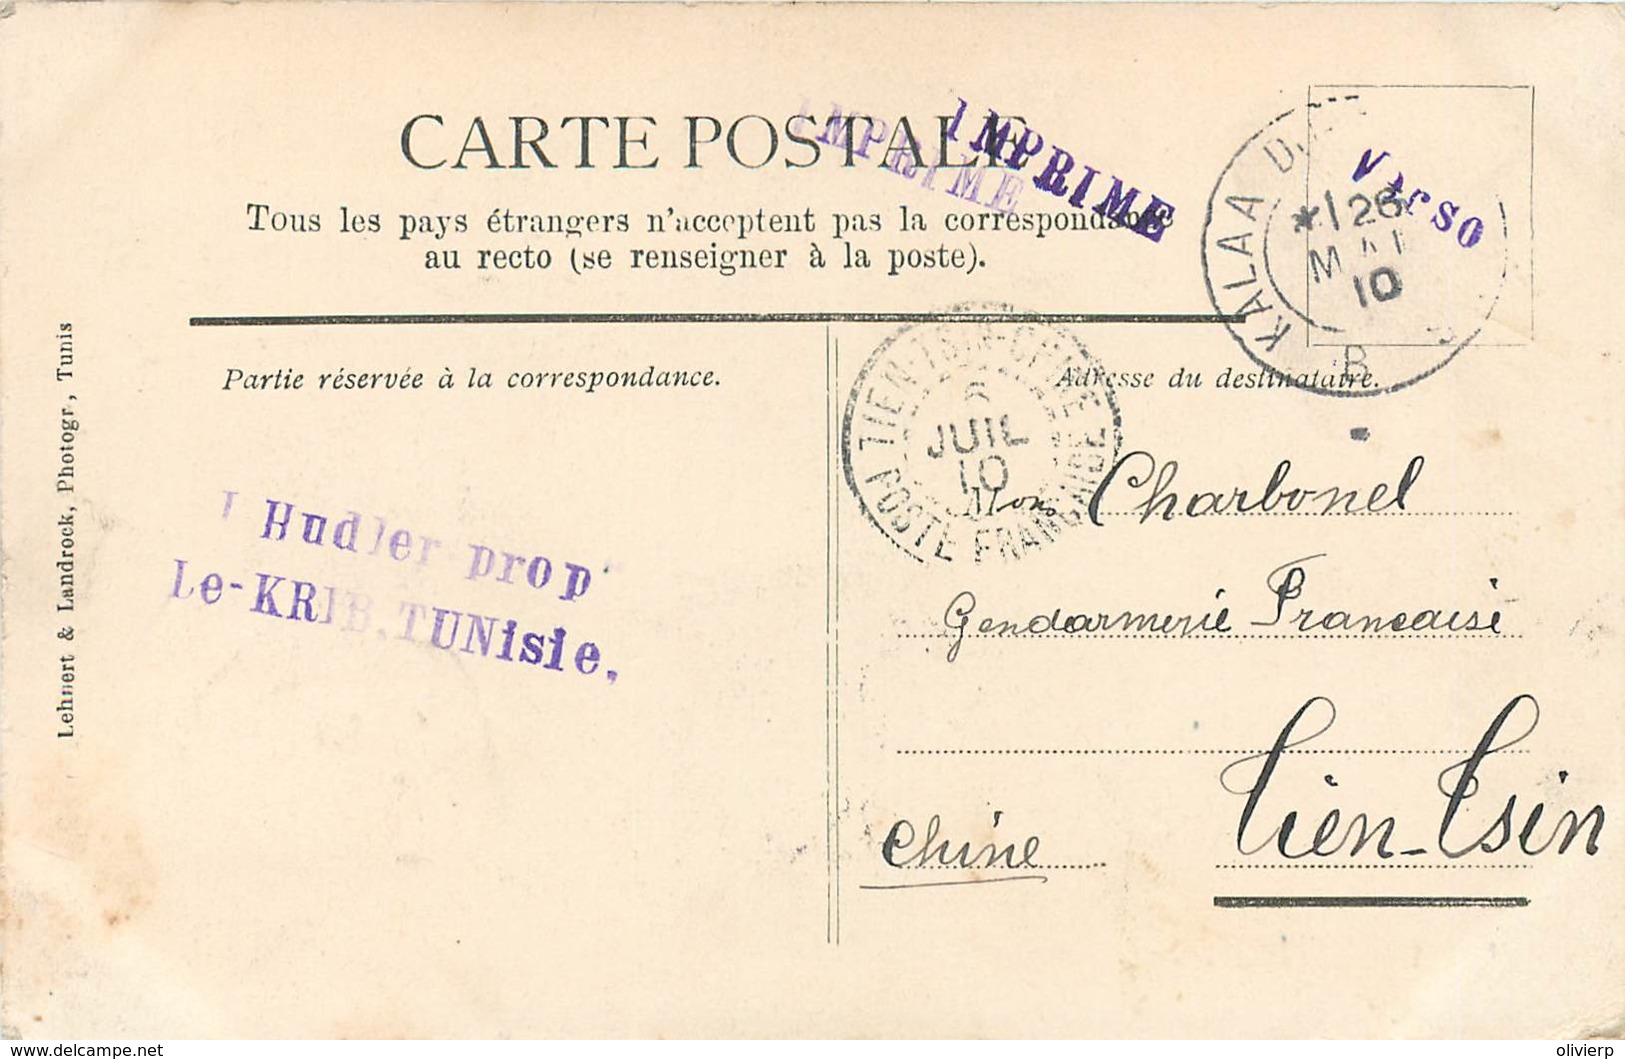 CARTE POSTALE
IMPRIME
IMPRIME
Verso
Tous les pays étrangers n'acceptent pas la correspondance
au recto (se renseigner à la poste).
KALAA
*
26
MAI
10
B
Partie réservée à la correspondance.
Adresse du destinataire.
TIEN-TSIN-CHINE
JUIL
10
POSTE FRANCAISE
Lehnert & Landrock, Photogr, Tunis
Hudler prop
Le-KRIB.TUNisie.
Mons Charbonel
Gendarmerie Francaise
Tien-Tsin
Chine
delcampe.net
olivierp